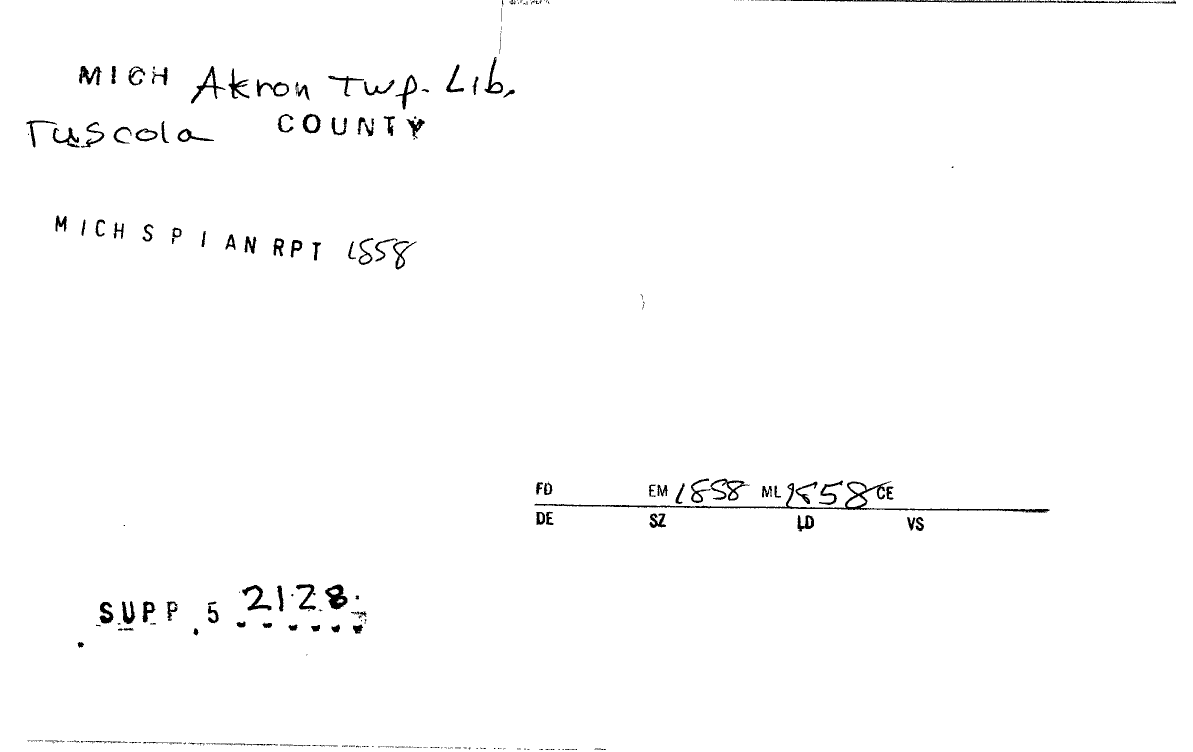 MICH Akron Twp. Lib.
Tuscola COUNTY
MICH S P I AN RPT 1858
FD EM 1858 ML 1858 CE
DE SZ LD VS
SUPP. 5 2128.